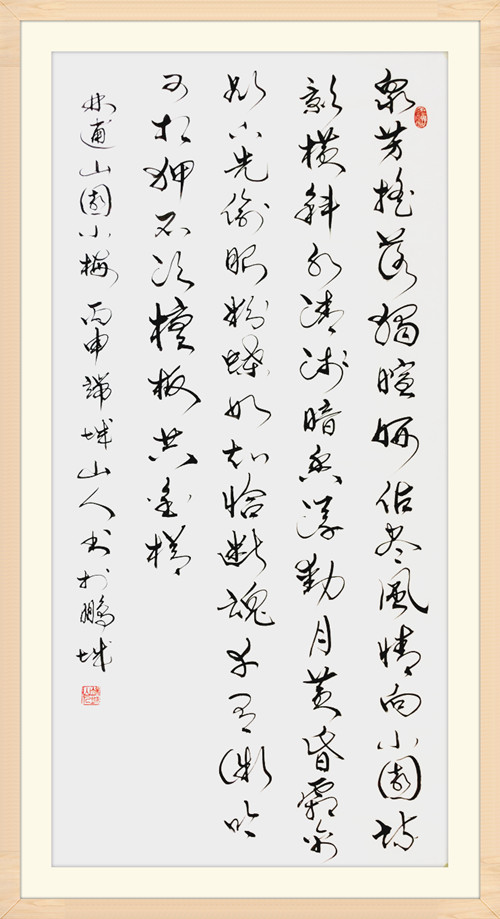 衆芳摇落獨暄妍佔尽風情向小園疏
影横斜水清浅暗香浮動月黄昏霜禽
欲下先偷眼粉蝶如知恰断魂幸有微吟
可相狎不须檀板共金樽
林逋山園小梅 丙申端城山人书於鹏城